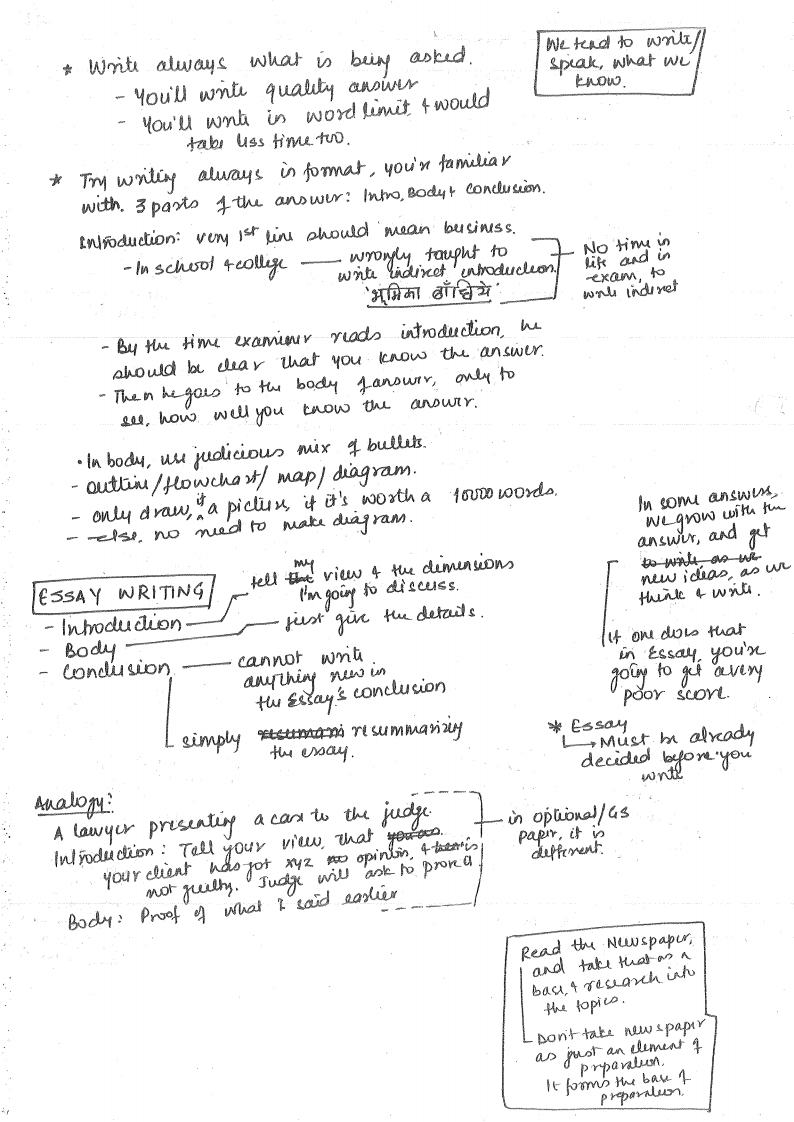 * Write always what is being asked.
- You'll write quality answer
- You'll write in word limit & would
take less time too.
We tend to write/
speak, what we
know.
* Try writing always in format, you're familiar
with. 3 parts of the answer: Intro, Body & Conclusion.
Introduction: very 1st line should mean business.
- In school & college — wrongly taught to
write indirect introduction
'भूमिका बाँधिये'
No time in
life and in
exam, to
write indirect
- By the time examiner reads introduction, he
should be clear that you know the answer.
- Then he goes to the body of answer, only to
see, how well you know the answer.
• In body, use judicious mix of bullets.
- outline/flowchart/map/diagram.
- only draw, if a picture, if it's worth a 10000 words.
- else, no need to make diagram.
In some answers,
we grow with the
answer, and get
to write as we
new ideas, as we
think & write.
If one does that
in Essay, you're
going to get a very
poor score.
* Essay
→ Must be already
decided before you
write
ESSAY WRITING
- Introduction — tell my view & the dimensions
I'm going to discuss.
- Body — just give the details.
- Conclusion — cannot write
anything new in
the Essay's conclusion
simply resummarizing
the essay.
Analogy:
A lawyer presenting a case to the judge.
Introduction: Tell your view, that
your client has got xyz opinion, & is
not guilty. Judge will ask to prove it
Body: Proof of what I said earlier
in optional/GS
paper, it is
different.
Read the Newspaper,
and take that as a
base, & research into
the topics.
Don't take newspaper
as just an element of
preparation.
It forms the base of
preparation.